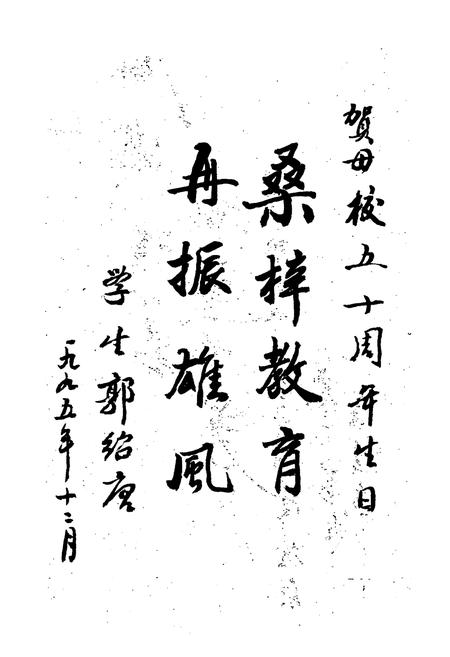 賀母校五十周年生日
桑梓教育
再振雄風
学生郭绍唐
一九九五年十二月